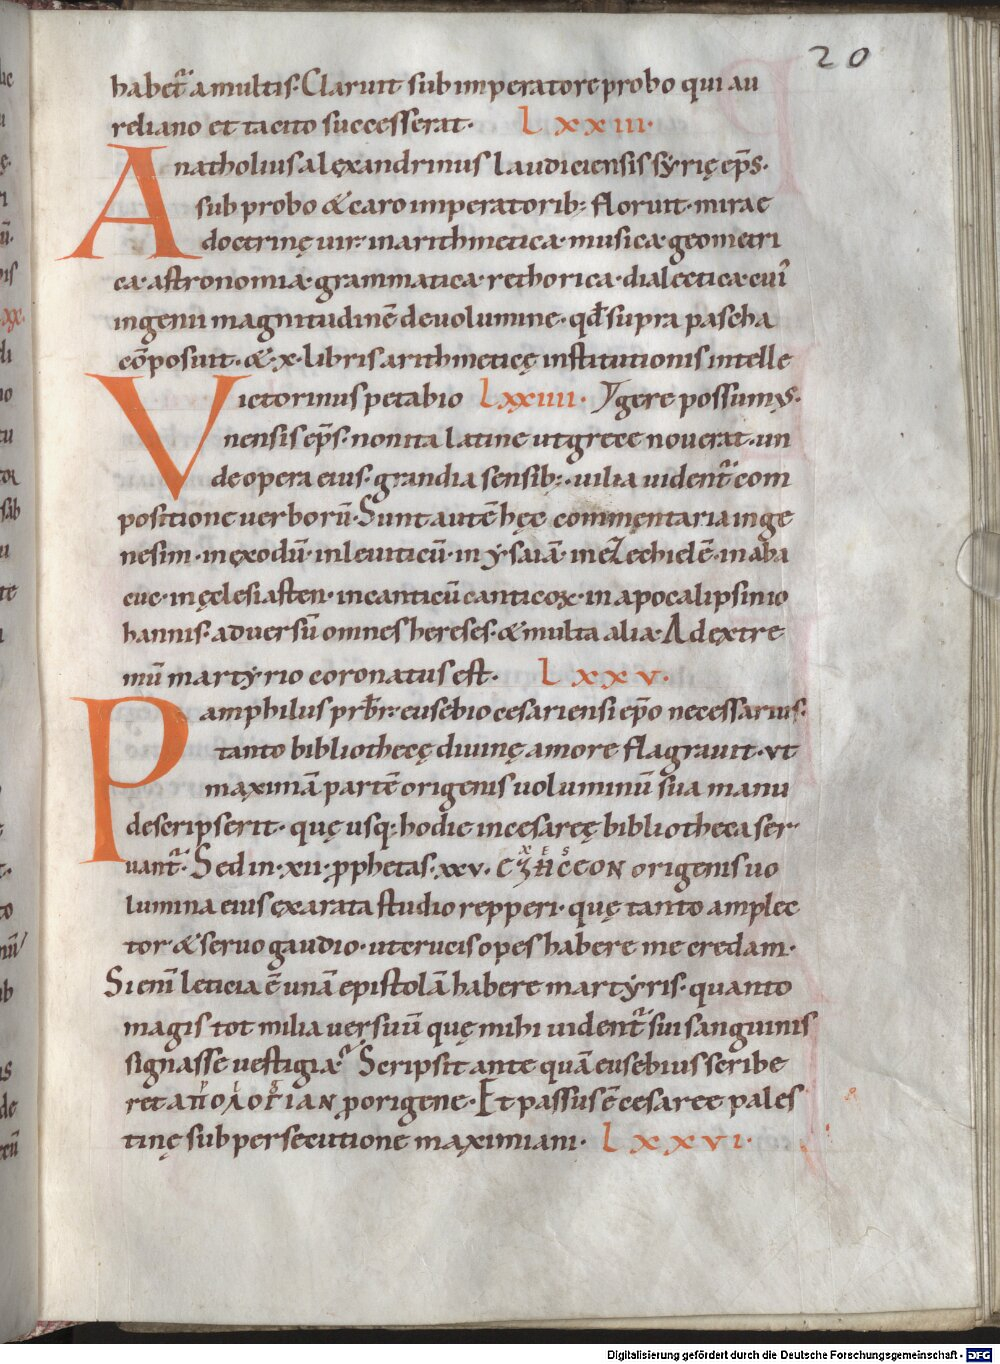 20
habet᷑ a multis· Claruit sub imperatore probo qui au
reliano et tacito successerat· Lxxiii·
Anatholius alęxandrinus Laudiciensis syrię ep̄s·
sub probo & caro imperatorib; floruit· mirae
doctrinę uir· in arithmetica· musica· geometri
ca· astronomia· grammatica· rethorica· dialectica· cui᷑
ingenii magnitudinē de uolumine· qđ supra pascha
cōposuit· & ·x· libris arithmeticę institutionis intelle
Victorinus petabio Lxxiiii· gere possumus·
nensis ep̄s· non ita latine ut grece nouerat· un
de opera eius· grandia sensib;· uilia uident᷑ com
positione uerborū· Sunt autē hęc commęntaria in ge
nesim· in exodū· in leuiticū· in ysaiā· in ezechielē· in aba
cuc· in ęclesiasten· in canticū canticoꝝ· in apocalipsin io
hannis· aduersū omnes hereses· & multa alia· Ad extre
mū martyrio coronatus est· Lxxv·
Pamphilus prb̄r· eusebio cesariensi ep̄o necessarius·
tanto bibliothecę diuinę amore flagrauit· ut
maximā partē origenis uoluminū sua manu
descripserit· quę usq; hodie in cesaręę bibliotheca ser
uant᷑· Sed in ·xii· ꝓphetas· xxv· origenis uo
lumina eius exarata studio repperi· quę tanto amplec
tor· & seruo gaudio· ut crucis opes habere me credam·
Si eni᷑ leticia ē unā epistolā habere martyris· quanto
magis tot milia uersuū quę mihi uident᷑ sui sanguinis
signasse uestigia· Scripsit ante quā eusebius scribe
ret ΑΠΟΛΟΓΙΑΝ ꝓ origene· Et passus ē cesaree pales
tinę sub persecutione maximiani· Lxxvi·
Digitalisierung gefördert durch die Deutsche Forschungsgemeinschaft - DFG